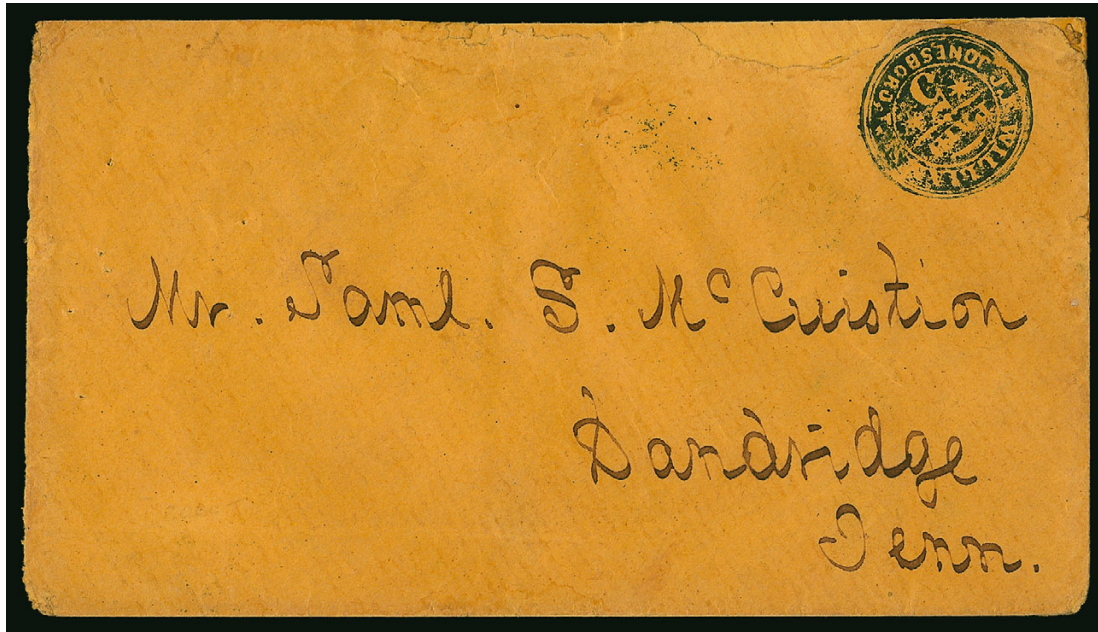 JONESBORO
5
Mr. Saml. S. Mc Cuistion
Dandridge
Tenn.